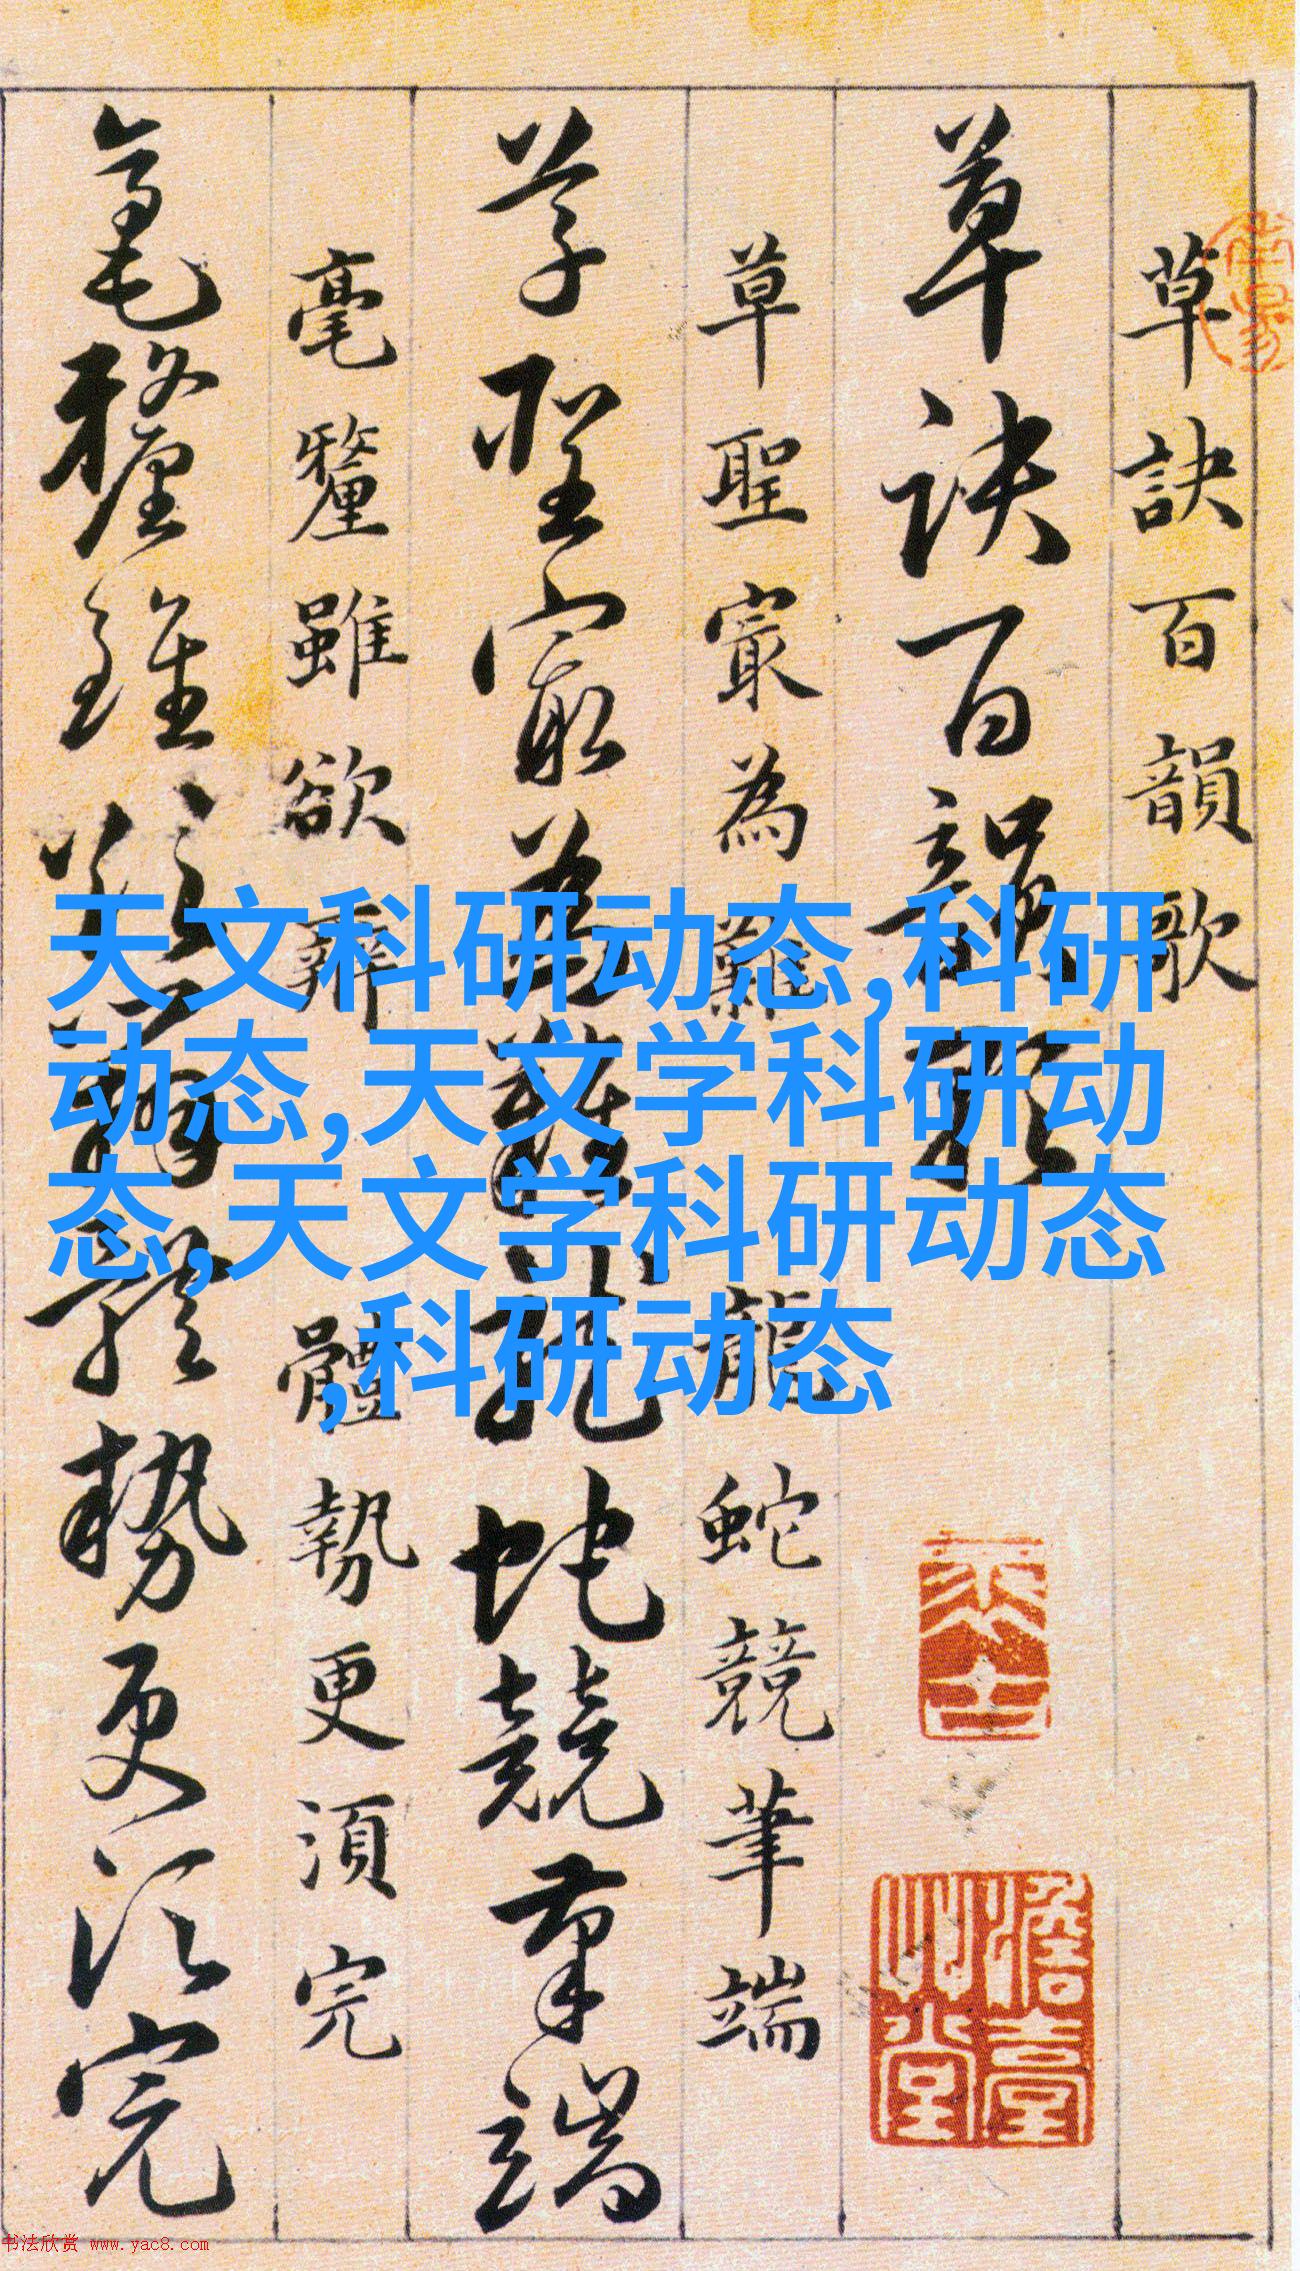 草訣百韻歌
草訣百韻歌
草聖㝡為難龍蛇競筆端
草聖㝡為難龍蛇競筆端
毫釐雖欲辨體勢更須完
毫釐雖欲辨體勢更須完
天文科研动态,科研
动态,天文学科研动
态,天文学科研动态
,科研动态
书法欣赏 www.yac8.com